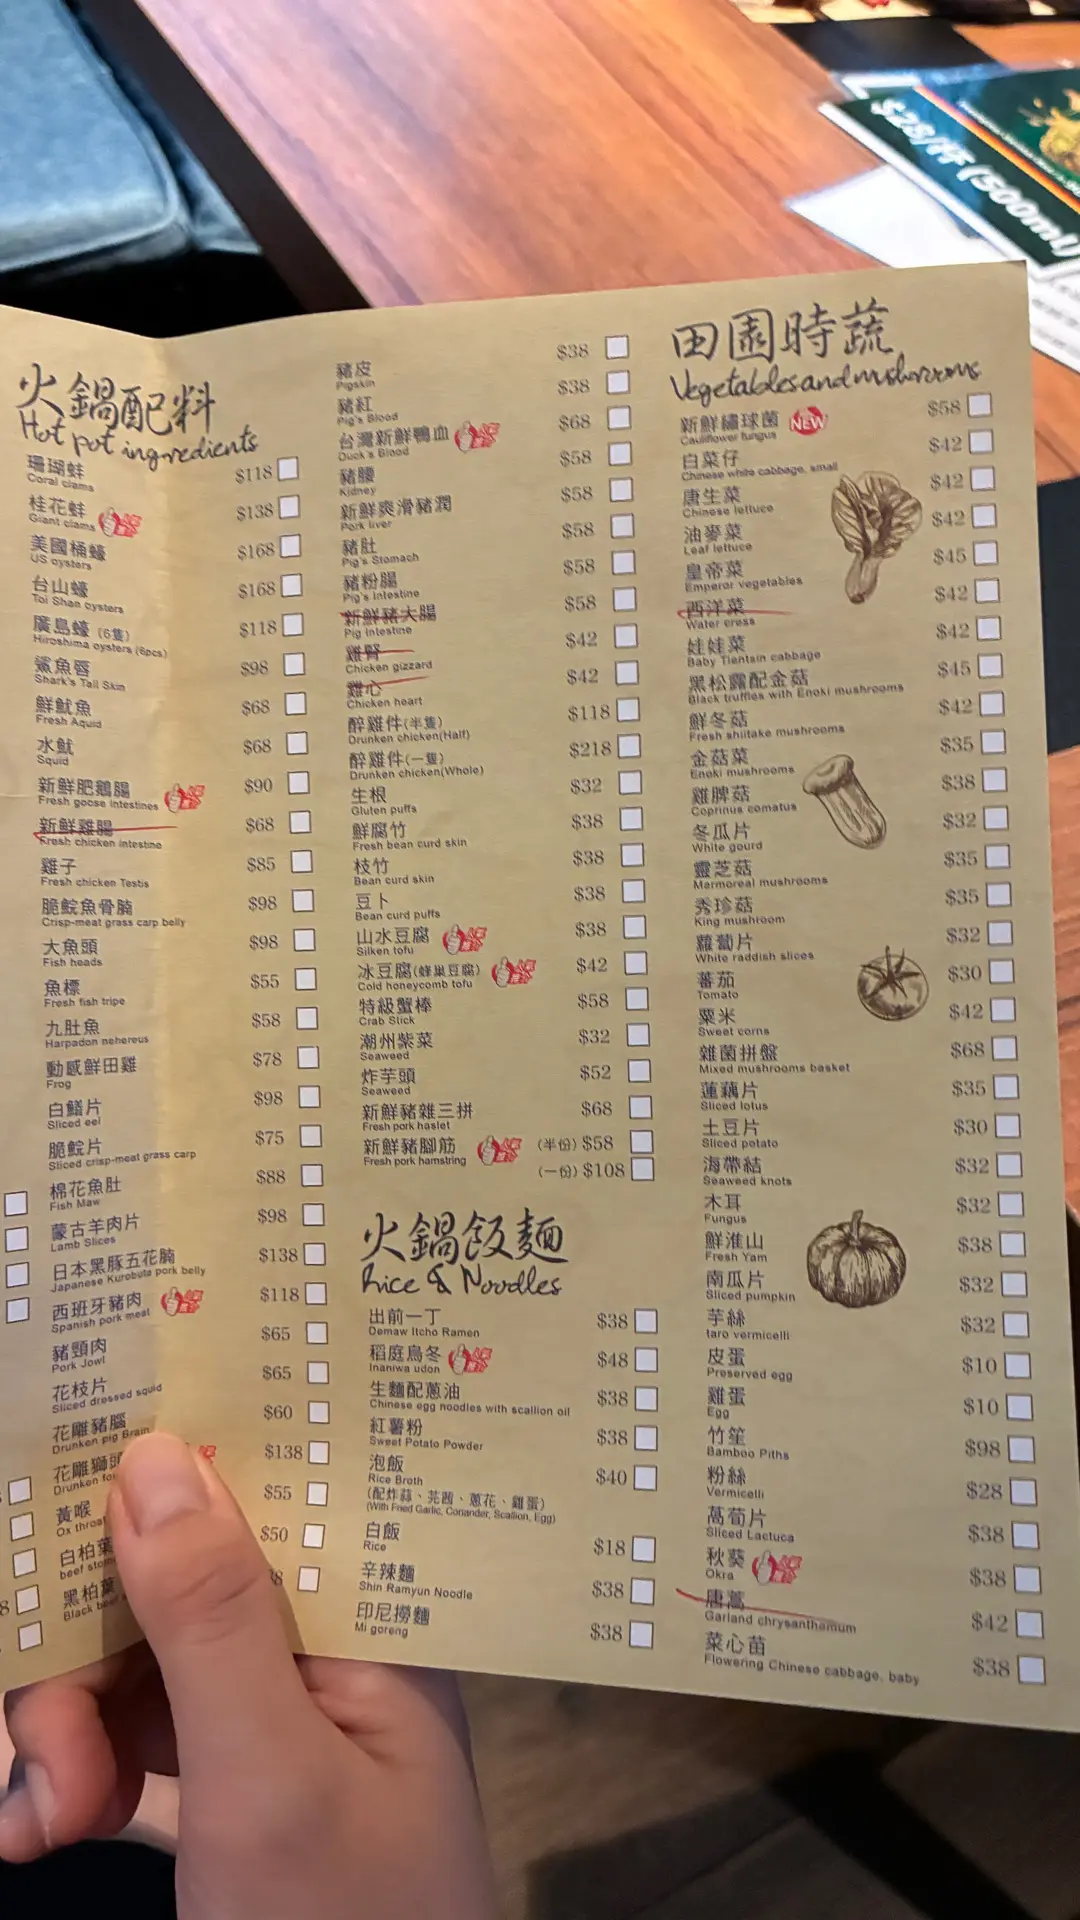 $28/杯 (500ml)
火鍋配料
Hot pot ingredients
珊瑚蚌 $118
Coral clams
桂花蚌 $138
Giant clams
美國桶蠔 $168
US oysters
台山蠔 $168
Toi Shan oysters
廣島蠔 (6隻) $118
Hiroshima oysters (6pcs)
鯊魚唇 $98
Shark's Tail Skin
鮮魷魚 $68
Fresh Aquid
水魷 $68
Squid
新鮮肥鵝腸 $90
Fresh goose intestines
新鮮雞腸 $68
Fresh chicken intestine
雞子 $85
Fresh chicken Testis
脆鯇魚骨腩 $98
Crisp-meat grass carp belly
大魚頭 $98
Fish heads
魚標 $55
Fresh fish tripe
九肚魚 $58
Harpadon nehereus
動感鮮田雞 $78
Frog
白鱔片 $98
Sliced eel
脆鯇片 $75
Sliced crisp-meat grass carp
棉花魚肚 $88
Fish Maw
蒙古羊肉片 $98
Lamb Slices
日本黑豚五花腩 $138
Japanese Kurobuta pork belly
西班牙豬肉 $118
Spanish pork meat
豬頸肉 $65
Pork Jowl
花枝片 $65
Sliced dressed squid
花雕豬腦 $60
Drunken pig Brain
花雕獅頭 $138
Drunken
黃喉 $55
Ox throat
白柏葉 $50
beef
黑柏葉
Black beef
豬皮 $38
Pigskin
豬紅 $38
Pig's Blood
台灣新鮮鴨血 $68
Duck's Blood
豬腰 $58
Kidney
新鮮爽滑豬潤 $58
Pork liver
豬肚 $58
Pig's Stomach
豬粉腸 $58
Pig's Intestine
新鮮豬大腸 $58
Pig Intestine
雞腎 $42
Chicken gizzard
雞心 $42
Chicken heart
醉雞件(半隻) $118
Drunken chicken(Half)
醉雞件(一隻) $218
Drunken chicken(Whole)
生根 $32
Gluten puffs
鮮腐竹 $38
Fresh bean curd skin
枝竹 $38
Bean curd skin
豆卜 $38
Bean curd puffs
山水豆腐 $38
Silken tofu
冰豆腐(蜂巢豆腐) $42
Cold honeycomb tofu
特級蟹棒 $58
Crab Stick
潮州紫菜 $32
Seaweed
炸芋頭 $52
Seaweed
新鮮豬雜三拼 $68
Fresh pork haslet
新鮮豬腳筋 (半份) $58
Fresh pork hamstring
(一份) $108
火鍋飯麵
Rice & Noodles
出前一丁 $38
Demaw Itcho Ramen
稻庭烏冬 $48
Inaniwa udon
生麵配蔥油 $38
Chinese egg noodles with scallion oil
紅薯粉 $38
Sweet Potato Powder
泡飯 $40
Rice Broth
(配炸蒜、芫茜、蔥花、雞蛋)
(With Fried Garlic, Coriander, Scallion, Egg)
白飯 $18
Rice
辛辣麵 $38
Shin Ramyun Noodle
印尼撈麵 $38
Mi goreng
田園時蔬
Vegetables and mushrooms
新鮮繡球菌 NEW $58
Cauliflower fungus
白菜仔 $42
Chinese white cabbage, small
唐生菜 $42
Chinese lettuce
油麥菜 $42
Leaf lettuce
皇帝菜 $45
Emperor vegetables
西洋菜 $42
Water cress
娃娃菜 $42
Baby Tientsin cabbage
黑松露配金菇 $45
Black truffles with Enoki mushrooms
鮮冬菇 $42
Fresh shiitake mushrooms
金菇菜 $35
Enoki mushrooms
雞脾菇 $38
Coprinus comatus
冬瓜片 $32
White gourd
靈芝菇 $35
Marmoreal mushrooms
秀珍菇 $35
King mushroom
蘿蔔片 $32
White raddish slices
蕃茄 $30
Tomato
粟米 $42
Sweet corns
雜菌拼盤 $68
Mixed mushrooms basket
蓮藕片 $35
Sliced lotus
土豆片 $30
Sliced potato
海帶結 $32
Seaweed knots
木耳 $32
Fungus
鮮淮山 $38
Fresh Yam
南瓜片 $32
Sliced pumpkin
芋絲 $32
taro vermicelli
皮蛋 $10
Preserved egg
雞蛋 $10
Egg
竹笙 $98
Bamboo Piths
粉絲 $28
Vermicelli
萵筍片 $38
Sliced Lactuca
秋葵 $38
Okra
唐蒿 $42
Garland chrysanthemum
菜心苗 $38
Flowering Chinese cabbage, baby